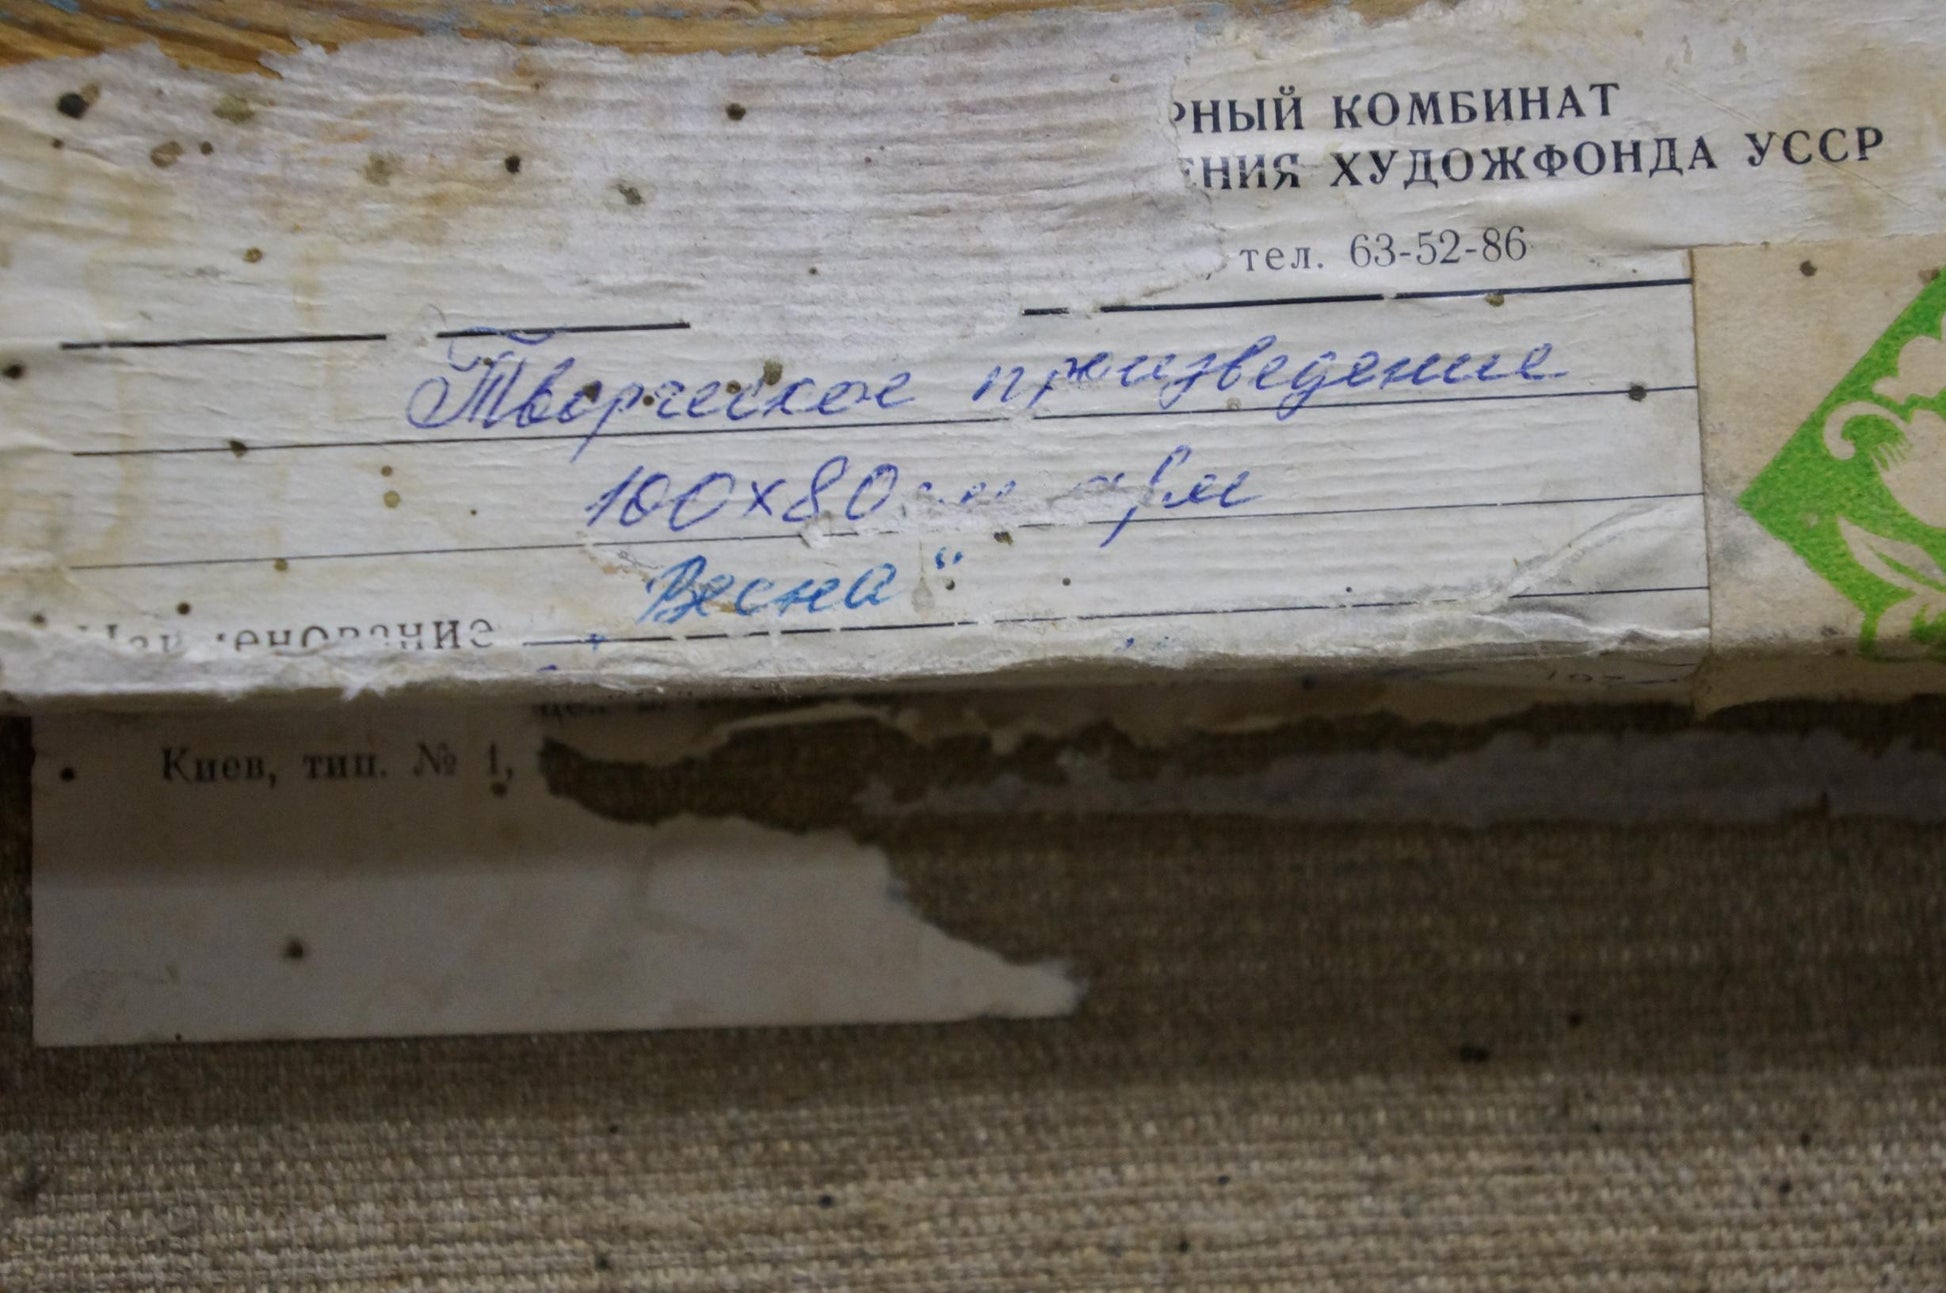 РНЫЙ КОМБИНАТ
ЕНИЯ ХУДОЖФОНДА УССР
тел. 63-52-86
Творческое произведение
100х80
Весна"
Наименование
Киев, тип. № 1,